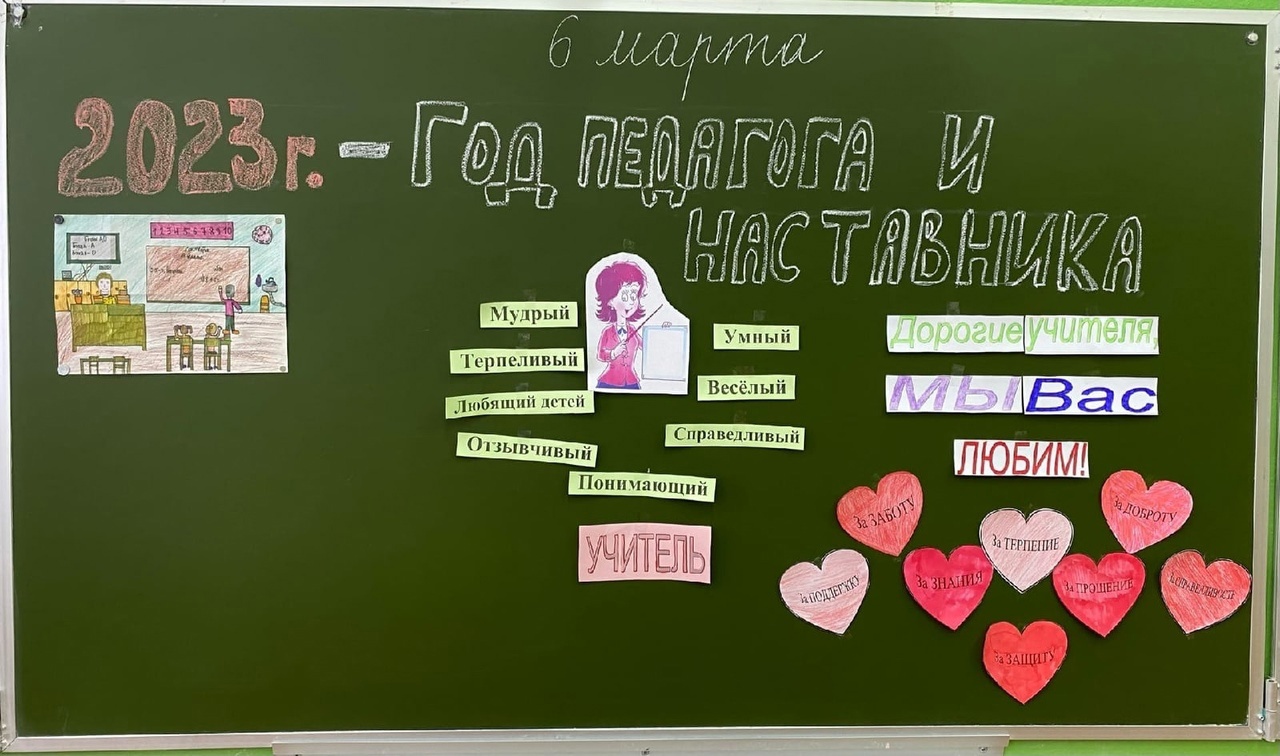 6 марта
2023г. - Год педагога и
наставника
1 2 3 4 5 6 7 8 9 10
Мудрый
Терпеливый
Любящий детей
Отзывчивый
Понимающий
Умный
Весёлый
Справедливый
УЧИТЕЛЬ
Дорогие учителя,
МЫ Вас
ЛЮБИМ!
За ЗАБОТУ
За ДОБРОТУ
За ТЕРПЕНИЕ
За ПОДДЕРЖКУ
За ЗНАНИЯ
За ПРОЩЕНИЕ
За СПРАВЕДЛИВОСТЬ
За ЗАЩИТУ